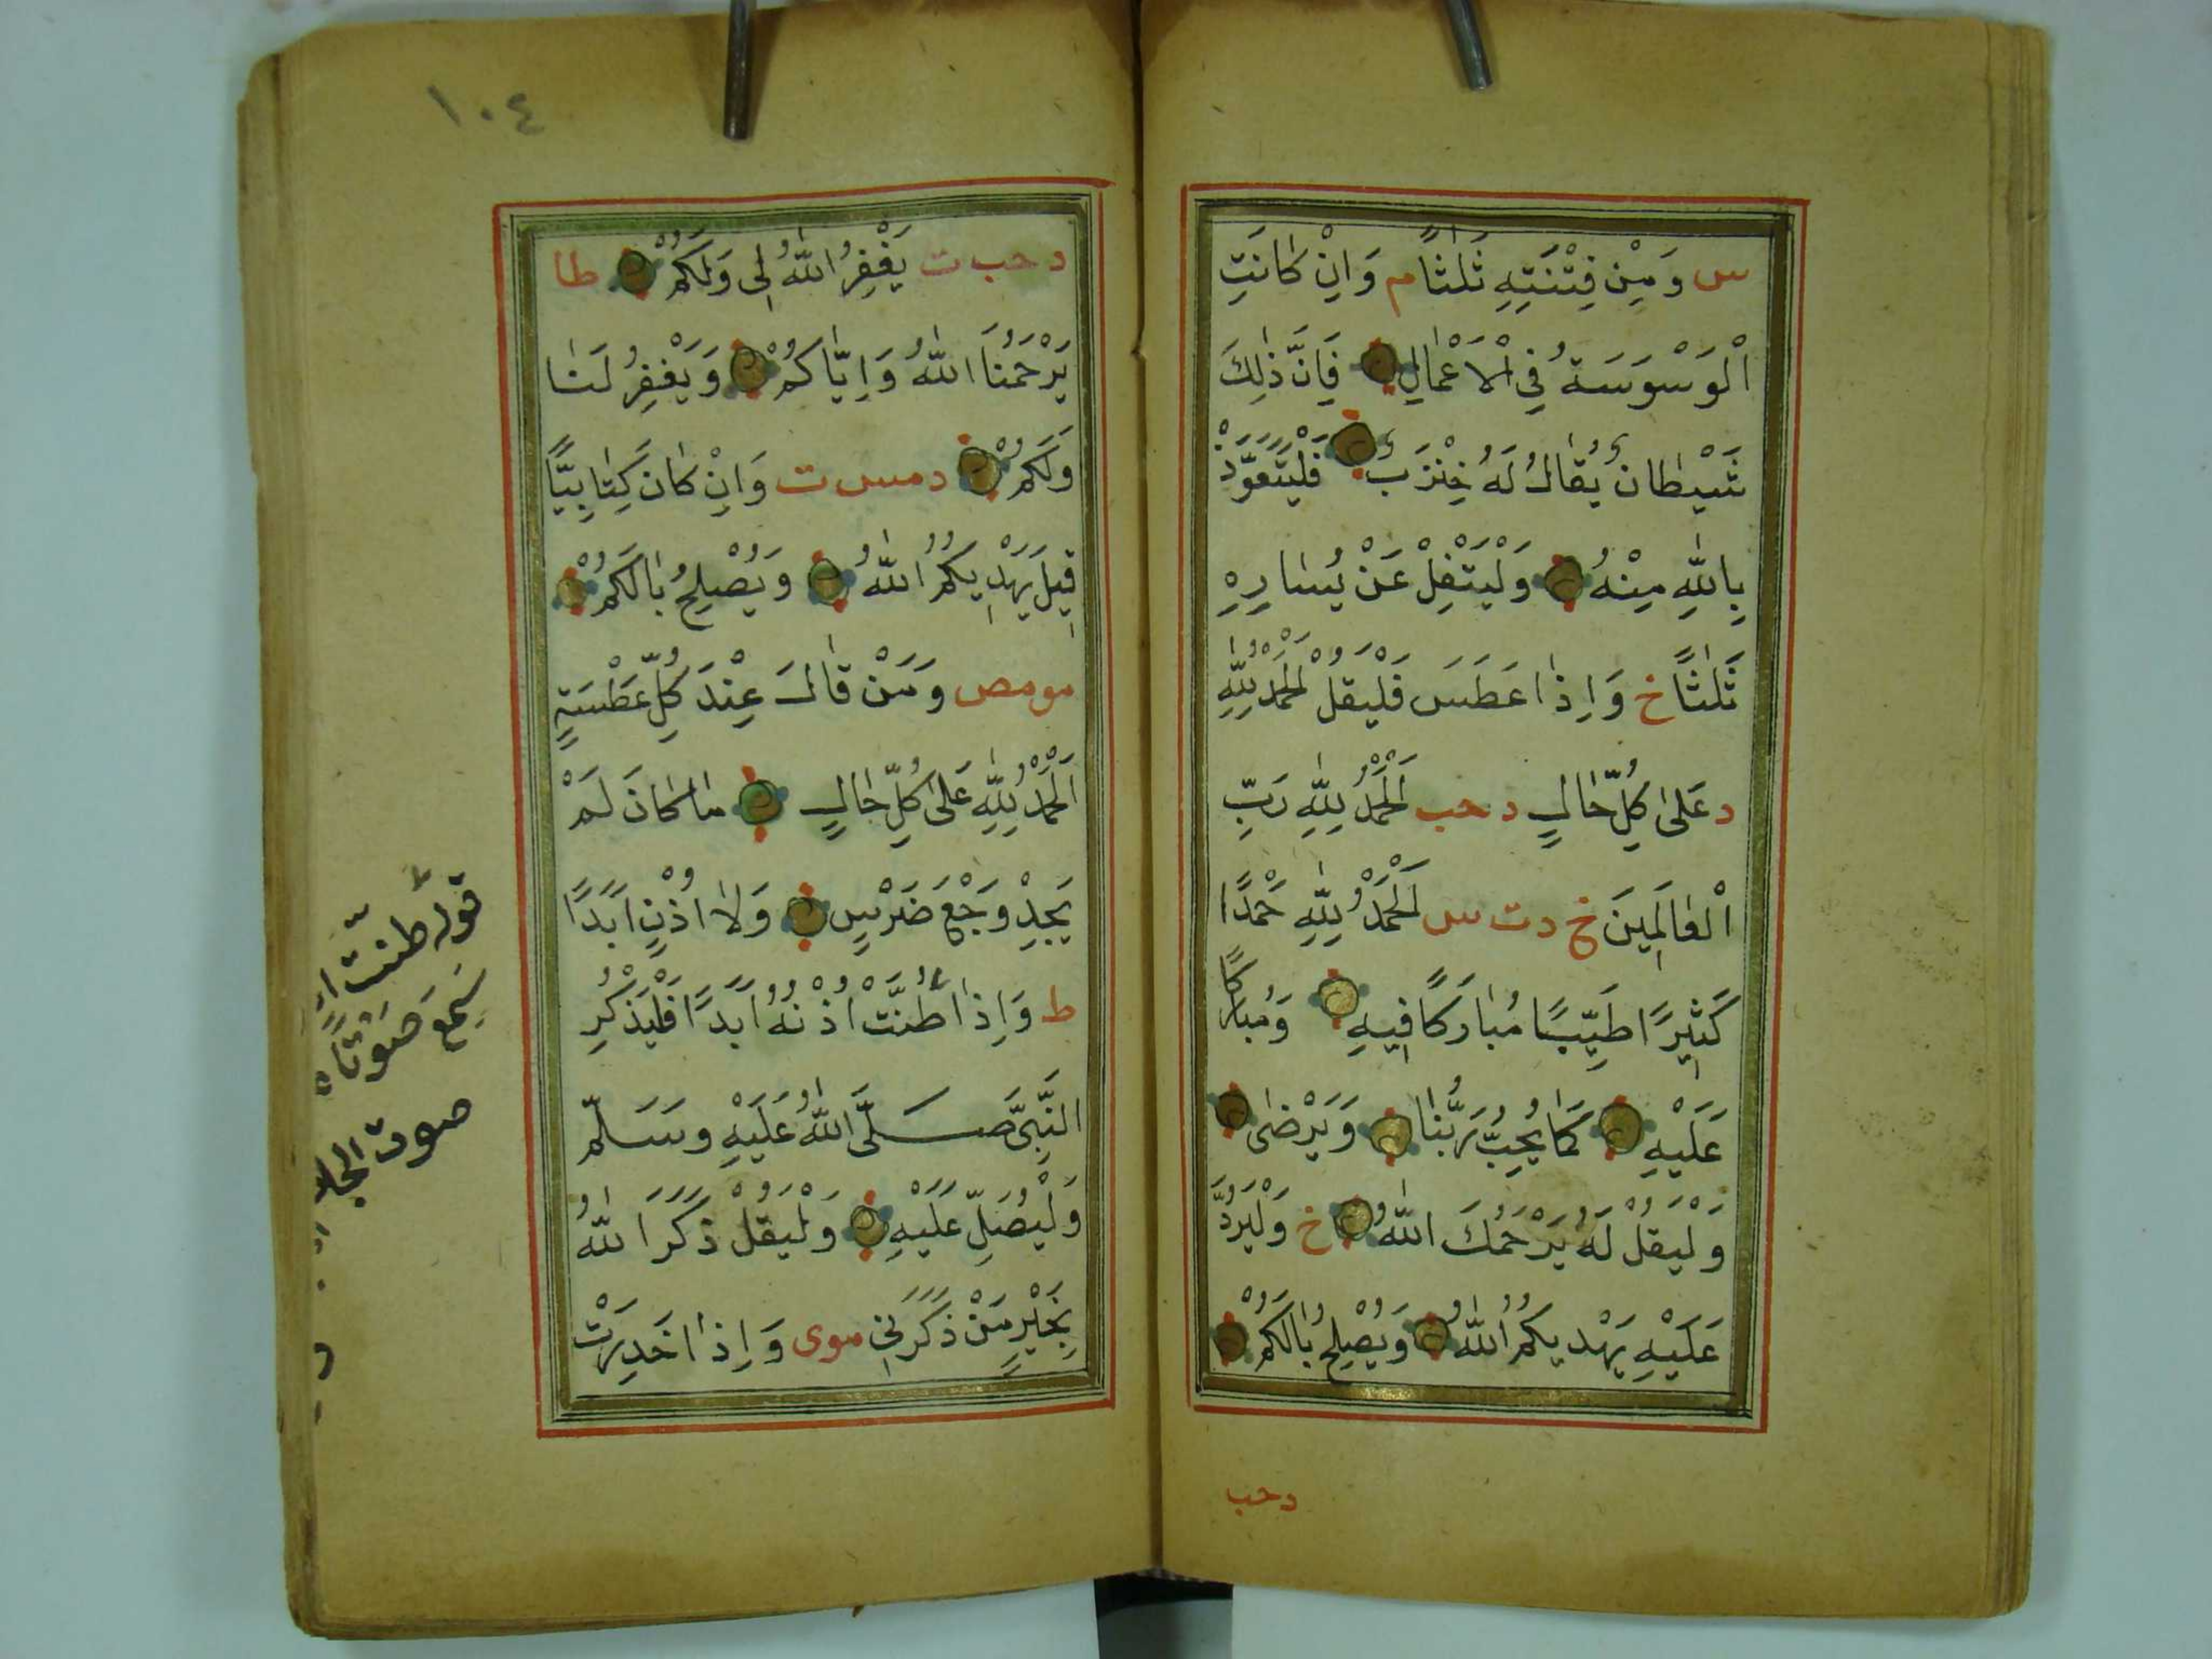 س وَمِنْ فِتْنَتِهِ ثَلٰثًا م وَاِنْ كَانَتِ
اْلوَسْوَسَةُ فِي اْلاَعْمَالِ فَاِنَّ ذٰلِكَ
شَيْطَانٌ يُقَالُ لَهُ خِنْزَبٌ فَلْيَتَعَوَّذْ
بِاللّٰهِ مِنْهُ وَلْيَتْفِلْ عَنْ يُسَارِهِ
ثَلٰثًا خ وَاِذَا عَطَسَ فَلْيَقُلْ اَلْحَمْدُ لِلّٰهِ
د عَلٰى كُلِّ حَالٍ د حب اَلْحَمْدُ لِلّٰهِ رَبِّ
اْلعَالَمِينَ خ د ت س اَلْحَمْدُ لِلّٰهِ حَمْدًا
كَثِيرًا طَيِّبًا مُبَارَكًا فِيهِ وَمُبَارَكًا
عَلَيْهِ كَمَا يُحِبُّ رَبُّنَا وَيَرْضٰى
وَلْيَقُلْ لَهُ يَرْحَمُكَ اللّٰهُ خ وَلْيَرُدَّ
عَلَيْهِ يَهْدِيكُمُ اللّٰهُ وَيُصْلِحُ بَالَكُمْ
د حب
١٠٤
د حب ت يَغْفِرُ اللّٰهُ لِى وَلَكُمْ طا
يَرْحَمُنَا اللّٰهُ وَاِيَّاكُمْ وَيَغْفِرُ لَنَا
وَلَكُمْ د مس ت وَاِنْ كَانَ كِتَابِيًّا
قِيلَ يَهْدِيكُمُ اللّٰهُ وَيُصْلِحُ بَالَكُمْ
مو مص وَمَنْ قَالَ عِنْدَ كُلِّ عَطْسَةٍ
اَلْحَمْدُ لِلّٰهِ عَلٰى كُلِّ حَالٍ مَا كَانَ لَمْ
يَجِدْ وَجَعَ ضَرْسٍ وَلاَ اُذْنٍ اَبَدًا
ط وَاِذَا طَنَّتْ اُذْنُهُ اَبَدًا فَلْيَذْكُرِ
النَّبِىَّ صَلَّى اللّٰهُ عَلَيْهِ وَسَلَّمَ
وَلْيُصَلِّ عَلَيْهِ وَلْيَقُلْ ذَكَرَ اللّٰهُ
بِخَيْرٍ مَنْ ذَكَرَنِى موى وَاِذَا خَدِرَتْ
قوله طنت
سَمِعَ صَوْتًا
صوت